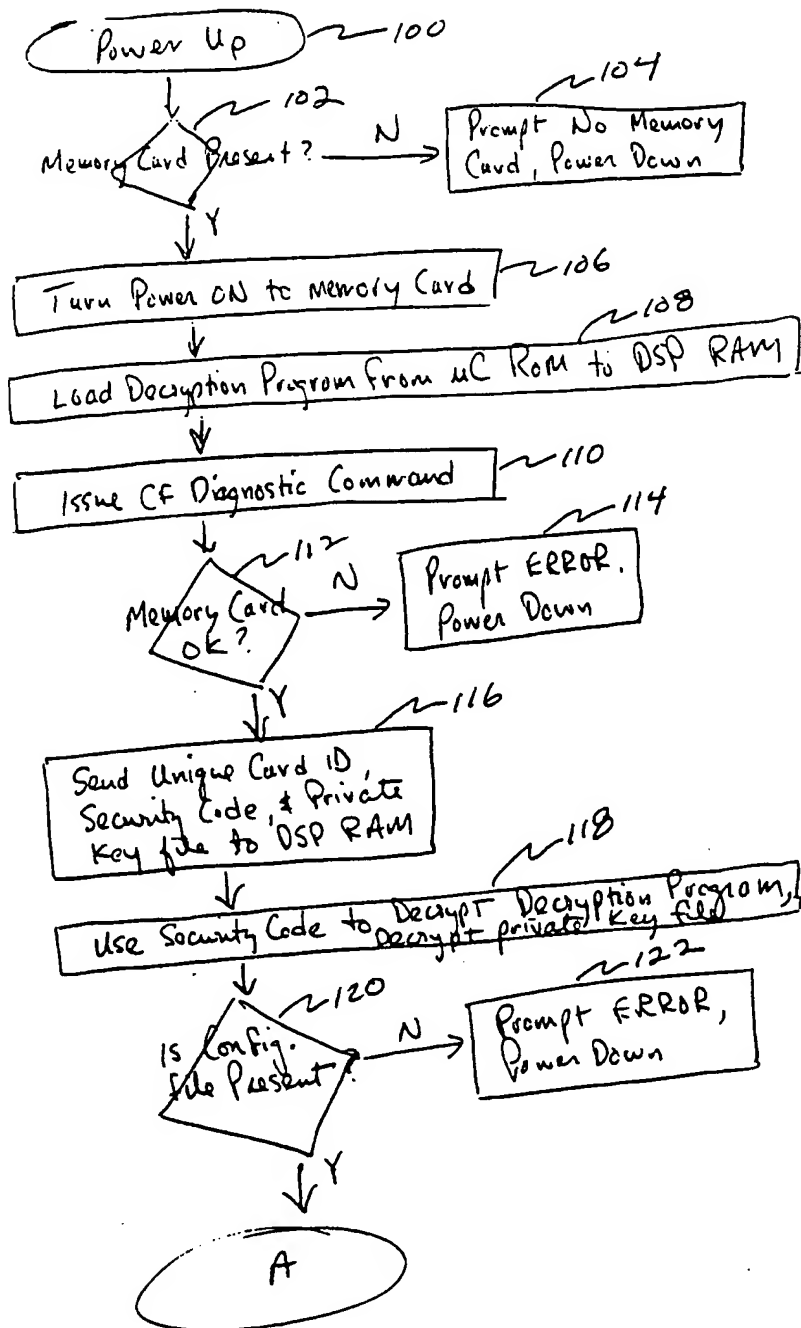 Power Up
100
102
Memory Card Present?
N
104
Prompt No Memory
Card, Power Down
Y
106
Turn Power ON to Memory Card
108
Load Decryption Program from uC ROM to DSP RAM
110
Issue CF Diagnostic Command
112
Memory Card
OK?
N
114
Prompt ERROR.
Power Down
Y
116
Send Unique Card ID,
Security Code, & Private
Key file to DSP RAM
118
Use Security Code to Decrypt Decryption Program,
Decrypt private Key file
120
Is Config.
file Present?
N
122
Prompt ERROR,
Power Down
Y
A